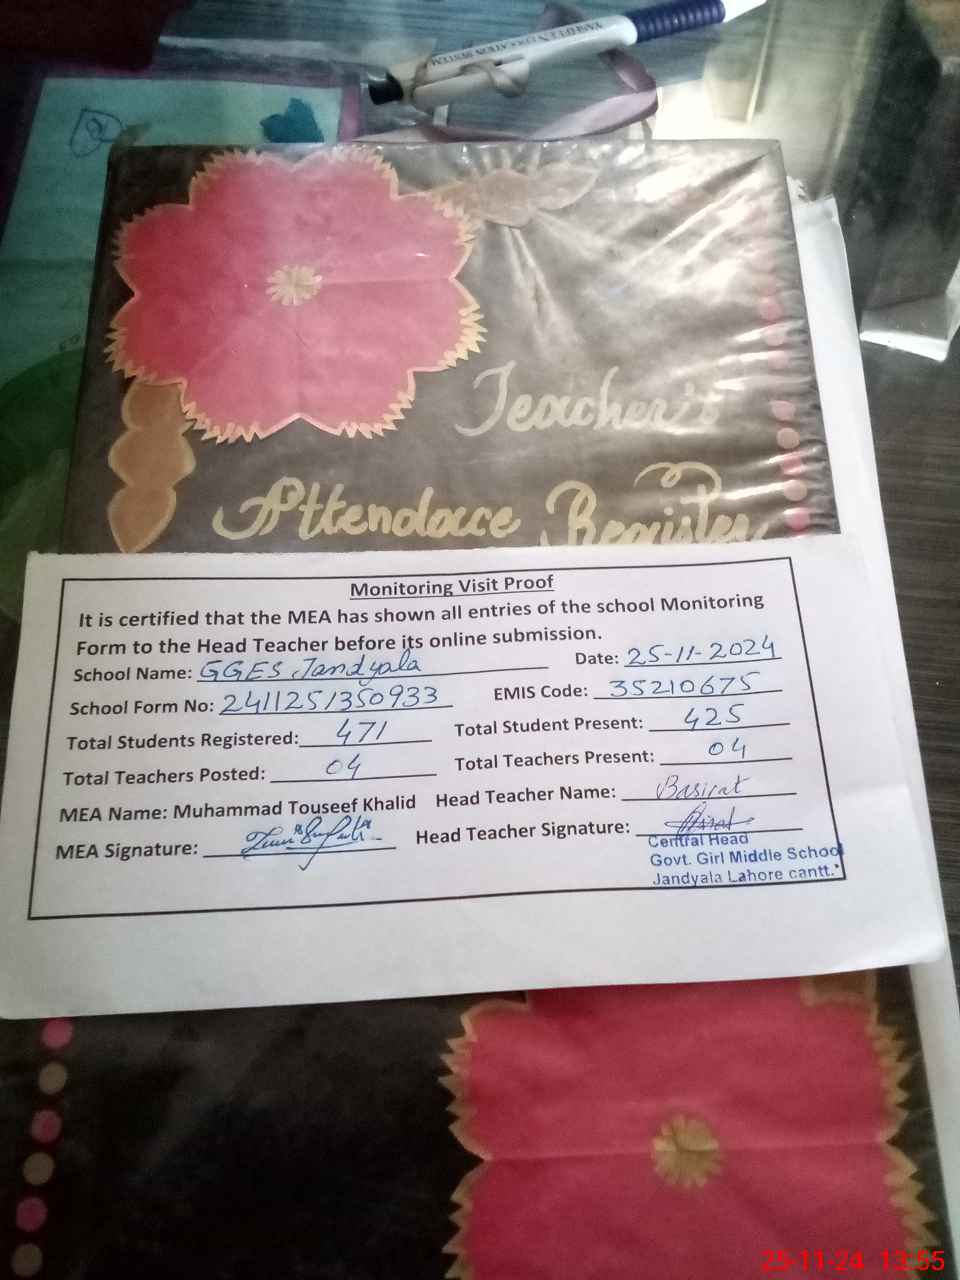 EDUCATION SYSTEM
Teacher's
Attendace Register
Monitoring Visit Proof
It is certified that the MEA has shown all entries of the school Monitoring
Form to the Head Teacher before its online submission.
School Name: GGES Jandyala Date: 25-11-2024
School Form No: 2411251350933 EMIS Code: 35210675
Total Students Registered: 471 Total Student Present: 425
Total Teachers Posted: 04 Total Teachers Present: 04
MEA Name: Muhammad Touseef Khalid Head Teacher Name: Basirat
MEA Signature: Head Teacher Signature:
Central Head
Govt. Girl Middle School
Jandyala Lahore cantt.
25-11-24 13:55